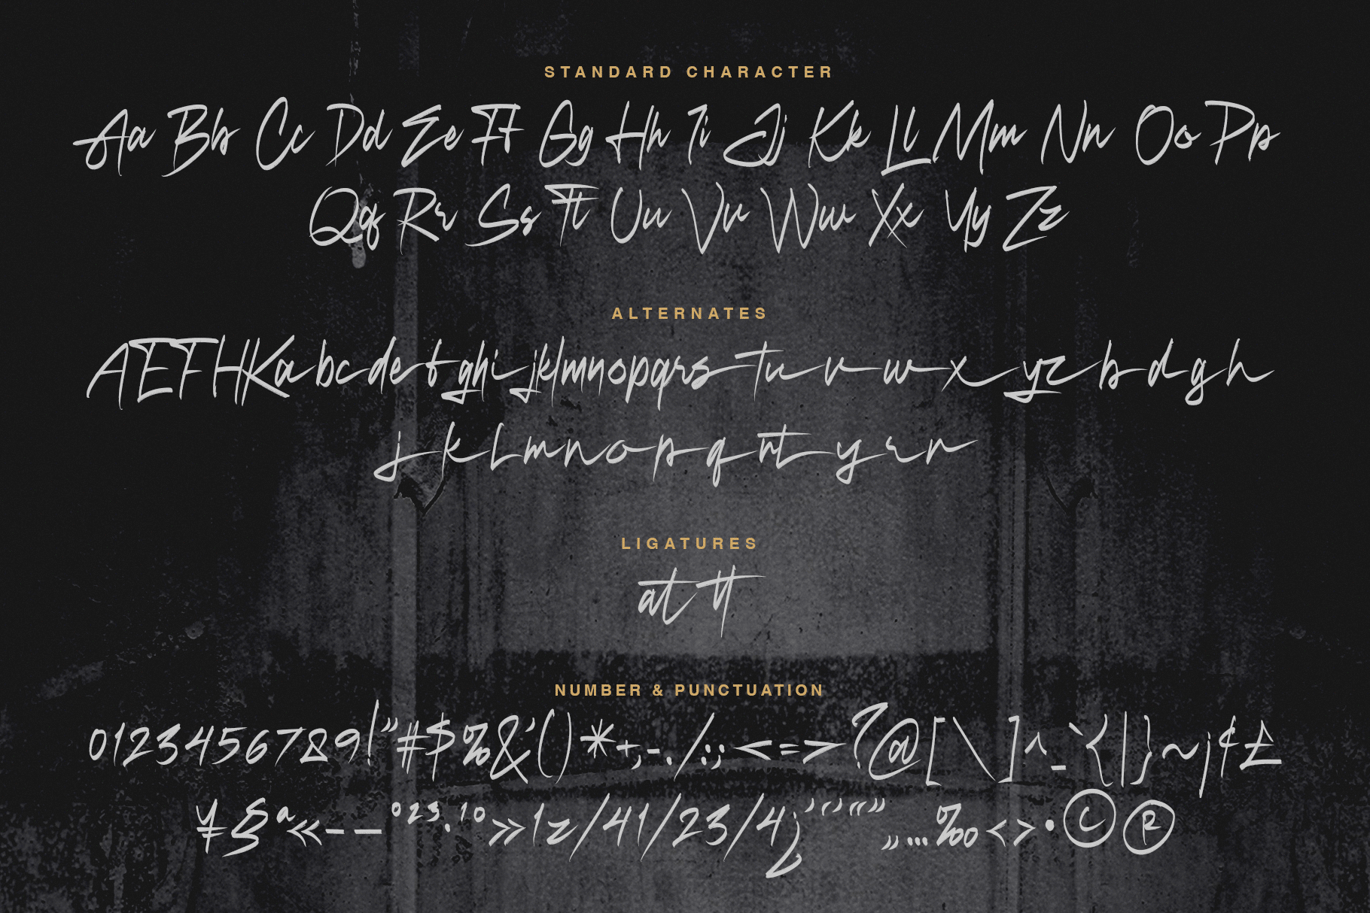 STANDARD CHARACTER
Aa Bb Cc Dd Ee Ff Gg Hh Ii Jj Kk Ll Mm Nn Oo Pp
Qq Rr Ss Tt Uu Vv Ww Xx Yy Zz
ALTERNATES
AEFHKabcdefghijklmnopqrstuvwxyzbdgh
jklmnopqrtyrn
LIGATURES
at tt
NUMBER & PUNCTUATION
0123456789!"#$%&'()*+,-./:;<=>?@[\]^_`{|}~¡¢£
¥§ª«-—°²³·¹º»1⁄41⁄23⁄4¿‘’“”„…‰‹›•©®